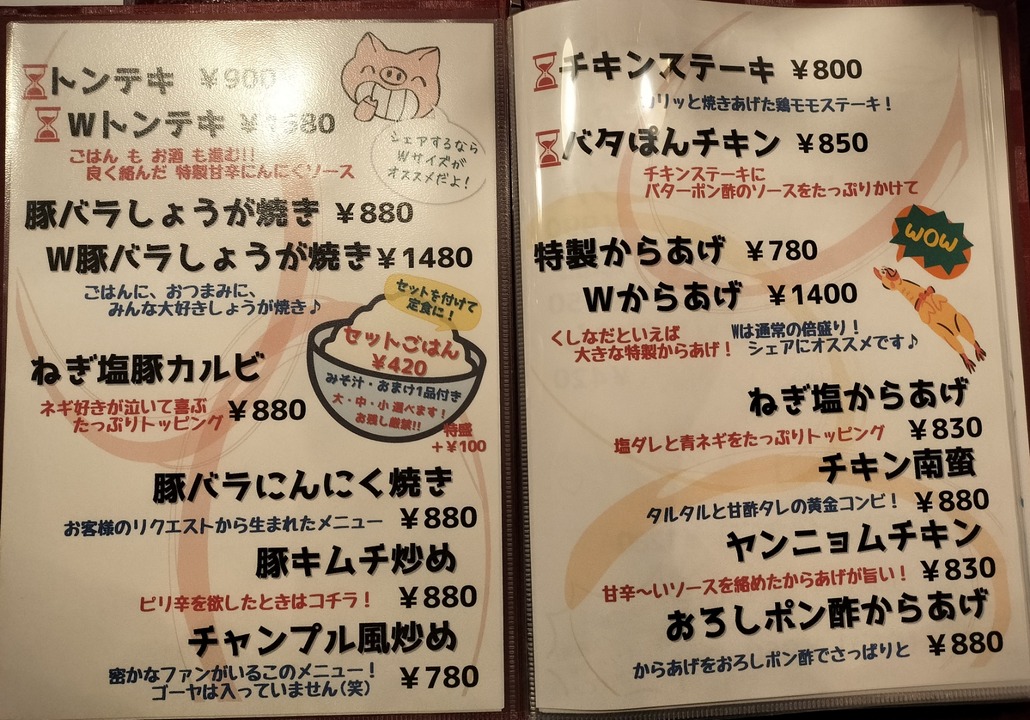 トンテキ ￥900
Wトンテキ
ごはん も お酒 も進む!!
良く絡んだ 特製甘辛にんにくソース
シェアするなら
Wサイズが
オススメだよ!
豚バラしょうが焼き ￥880
W豚バラしょうが焼き￥1480
ごはんに、おつまみに、
みんな大好きしょうが焼き♪
セットを付けて
定食に!
セットごはん
￥420
みそ汁・おまけ1品付き
大・中・小 選べます!
お残し厳禁!!
特盛
+￥100
ねぎ塩豚カルビ
ネギ好きが泣いて喜ぶ
たっぷりトッピング
￥880
豚バラにんにく焼き
お客様のリクエストから生まれたメニュー ￥880
豚キムチ炒め
ピリ辛を欲したときはコチラ! ￥880
チャンプル風炒め
密かなファンがいるこのメニュー!
ゴーヤは入っていません(笑)
￥780
チキンステーキ ￥800
カリッと焼きあげた鶏モモステーキ!
バタぽんチキン ￥850
チキンステーキに
バターポン酢のソースをたっぷりかけて
WOW
特製からあげ ￥780
Wからあげ ￥1400
くしなだといえば
大きな特製からあげ!
Wは通常の倍盛り!
シェアにオススメです♪
ねぎ塩からあげ
塩ダレと青ネギをたっぷりトッピング ￥830
チキン南蛮
タルタルと甘酢タレの黄金コンビ! ￥880
ヤンニョムチキン
甘辛〜いソースを絡めたからあげが旨い! ￥830
おろしポン酢からあげ
からあげをおろしポン酢でさっぱりと ￥880